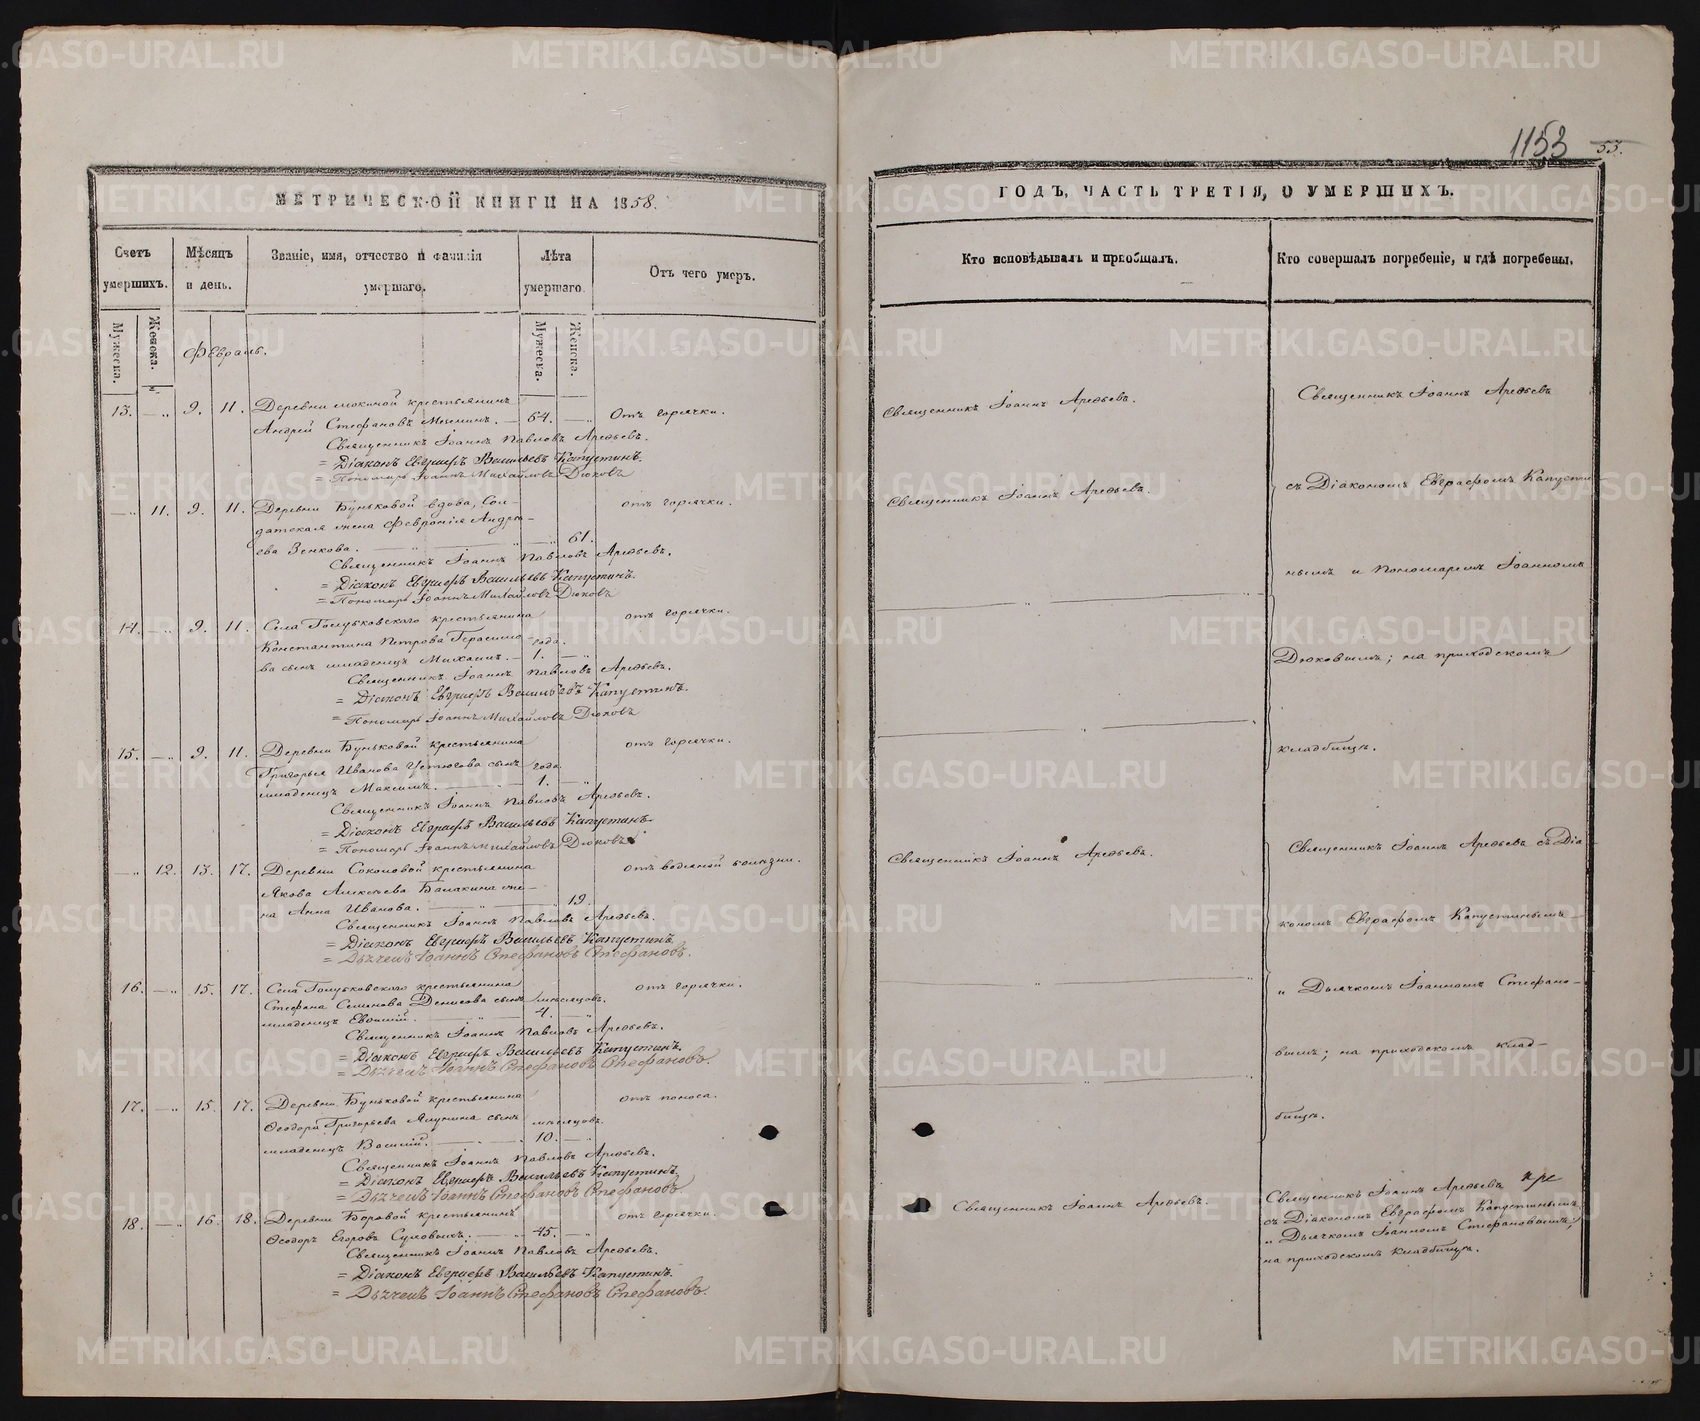 1153
53.
МЕТРИЧЕСКОЙ КНИГИ НА 1858.
Счетъ умершихъ.
Мѣсяцъ и день.
Званіе, имя, отчество и фамилія умершаго.
Лѣта умершаго.
Отъ чего умеръ.
Мужеска.
Женска.
Мужеска.
Женска.
Февраль.
13. 9. 11. Деревни крестьянинъ
Андрей Стефановъ 64. Отъ горячки.
Священникъ Іоаннъ Павловъ Арефьевъ.
= Діаконъ Евграфъ Васильевъ Капустинъ.
= Пономарь Іоаннъ Михайловъ Дюковъ
11. 9. 11. Деревни Буньковой вдова, Сол-
датская жена Февронія Андре-
ева Зенкова. 61. отъ горячки.
Священникъ Іоаннъ Павловъ Арефьевъ.
= Діаконъ Евграфъ Васильевъ Капустинъ.
= Пономарь Іоаннъ Михайловъ Дюковъ
14. 9. 11. Села Голубковскаго крестьянина
Константина Петрова Герасимо- года.
ва сынъ младенецъ Михаилъ. 1. отъ горячки.
Священникъ Іоаннъ Павловъ Арефьевъ.
= Діаконъ Евграфъ Васильевъ Капустинъ.
= Пономарь Іоаннъ Михайловъ Дюковъ
15. 9. 11. Деревни Буньковой крестьянина
Григорья Иванова Устюгова сынъ года
младенецъ Максимъ. 1. отъ горячки.
Священникъ Іоаннъ Павловъ Арефьевъ.
= Діаконъ Евграфъ Васильевъ Капустинъ.
= Пономарь Іоаннъ Михайловъ Дюковъ
12. 13. 17. Деревни Соколовой крестьянина
Якова Алексѣева Балакина же-
на Анна Иванова. 19. отъ водяной болѣзни.
Священникъ Іоаннъ Павловъ Арефьевъ.
= Діаконъ Евграфъ Васильевъ Капустинъ.
= Дьячекъ Іоаннъ Стефановъ Стефановъ.
16. 15. 17. Села Голубковскаго крестьянина
Стефана Семенова Денисова сынъ мѣсяцовъ.
младенецъ 4. отъ горячки.
Священникъ Іоаннъ Павловъ Арефьевъ.
= Діаконъ Евграфъ Васильевъ Капустинъ.
= Дьячекъ Іоаннъ Стефановъ Стефановъ.
17. 15. 17. Деревни Буньковой крестьянина
Ѳеодора Григорьева Ялунина сынъ мѣсяцовъ.
младенецъ Василій. 10. отъ поноса.
Священникъ Іоаннъ Павловъ Арефьевъ.
= Діаконъ Евграфъ Васильевъ Капустинъ.
= Дьячекъ Іоаннъ Стефановъ Стефановъ.
18. 16. 18. Деревни Боровой крестьянинъ
Ѳеодоръ Егоровъ 45. отъ горячки.
Священникъ Іоаннъ Павловъ Арефьевъ.
= Діаконъ Евграфъ Васильевъ Капустинъ.
= Дьячекъ Іоаннъ Стефановъ Стефановъ.
ГОДЪ, ЧАСТЬ ТРЕТІЯ, О УМЕРШИХЪ.
Кто исповѣдывалъ и пріобщалъ.
Кто совершалъ погребеніе, и гдѣ погребены.
Священникъ Іоаннъ Арефьевъ.
Священникъ Іоаннъ Арефьевъ.
Священникъ Іоаннъ Арефьевъ.
Священникъ Іоаннъ Арефьевъ.
Священникъ Іоаннъ Арефьевъ
съ Діакономъ Евграфомъ Капусти-
нымъ и Пономаремъ Іоанномъ
Дюковымъ; на приходскомъ
кладбищѣ.
Священникъ Іоаннъ Арефьевъ съ Діа-
кономъ Евграфомъ Капустинымъ
и Дьячкомъ Іоанномъ Стефано-
вымъ; на приходскомъ клад-
бищѣ.
Священникъ Іоаннъ Арефьевъ
съ Діакономъ Евграфомъ Капустинымъ
и Дьячкомъ Іоанномъ Стефановымъ;
на приходскомъ кладбищѣ.
METRIKI.GASO-URAL.RU